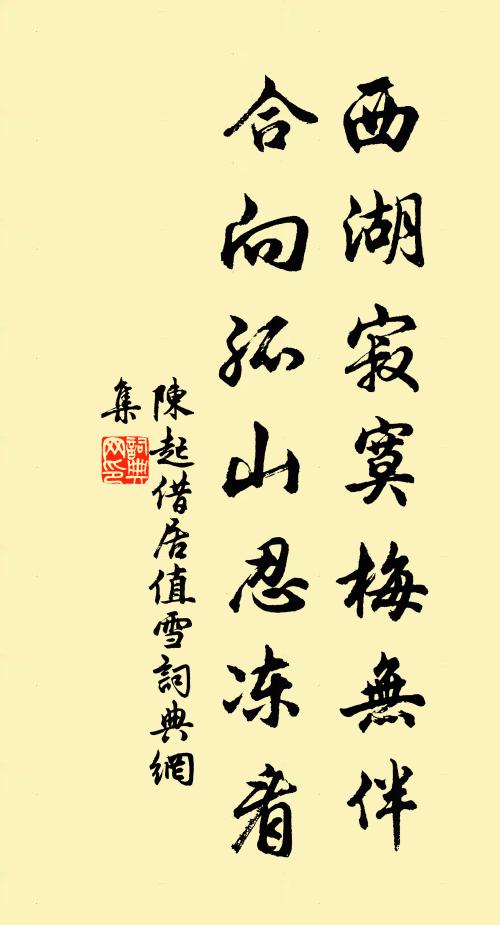 西湖寂寞梅無伴
合向孤山忍冻看
陳起借居值雪詞典網
集
詞典
网印